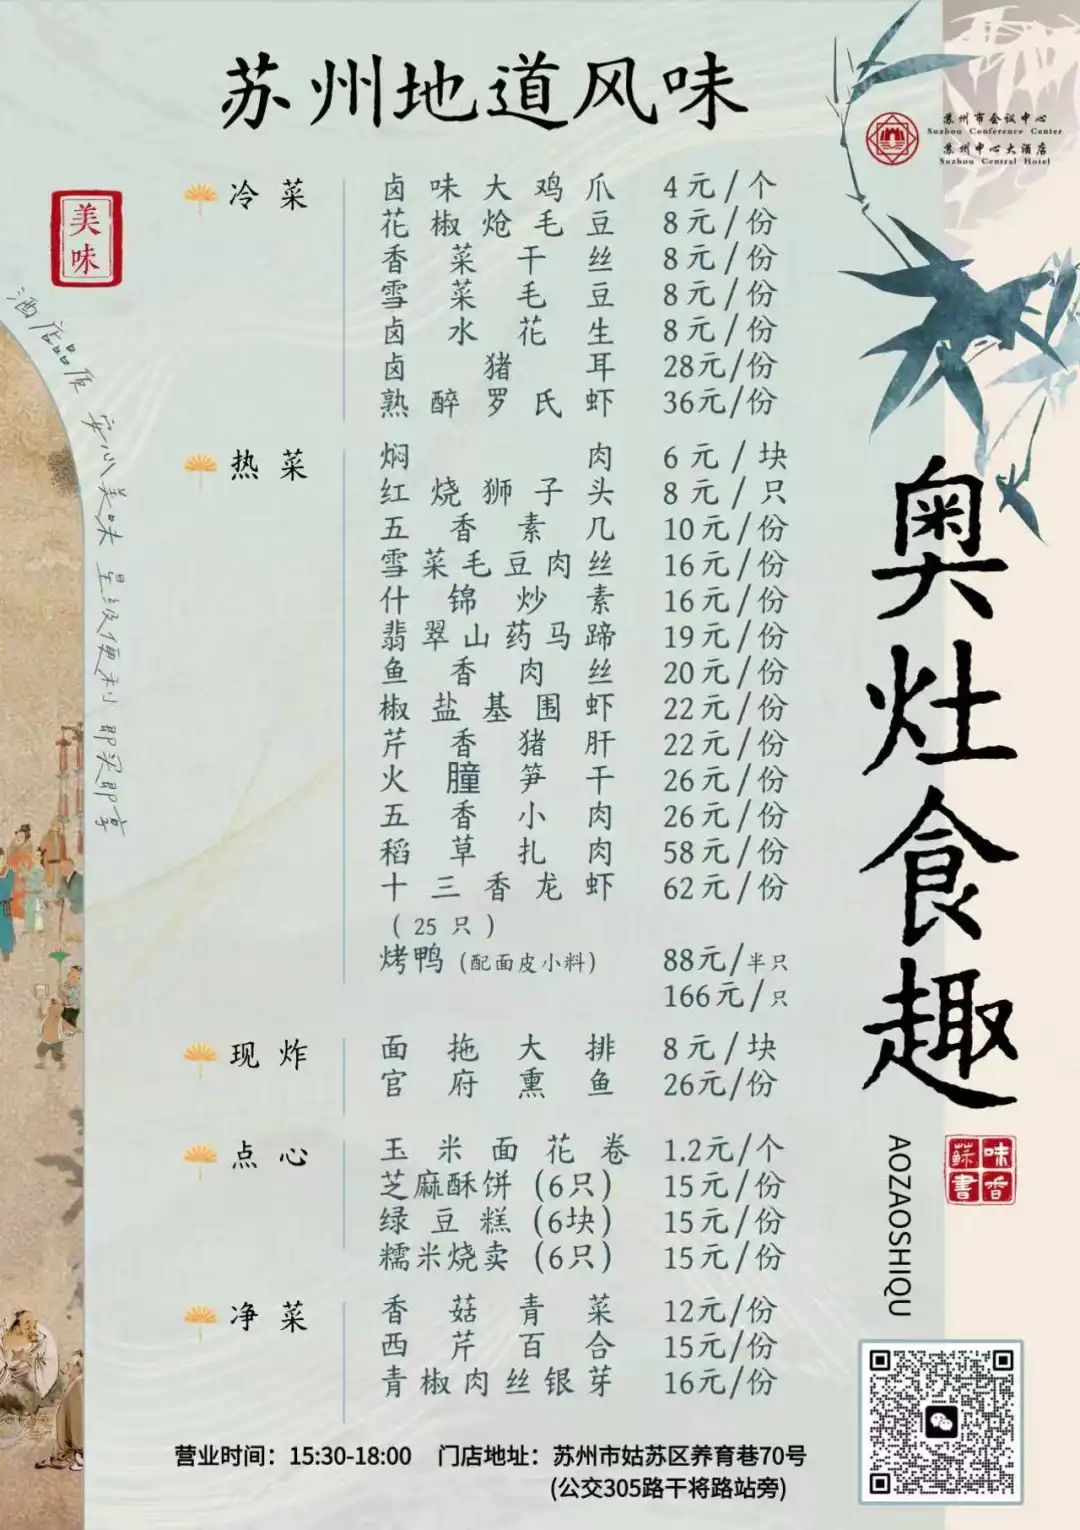 苏州地道风味
苏州市会议中心
Suzhou Conference Center
苏州中心大酒店
Suzhou Central Hotel
美味
酒店品质 安心美味 星级便利 即买即享
冷菜
卤味大鸡爪 4元/个
花椒炝毛豆 8元/份
香菜干丝 8元/份
雪菜毛豆 8元/份
卤水花生 8元/份
卤猪耳 28元/份
熟醉罗氏虾 36元/份
热菜
焖肉 6元/块
红烧狮子头 8元/只
五香素几 10元/份
雪菜毛豆肉丝 16元/份
什锦炒素 16元/份
翡翠山药马蹄 19元/份
鱼香肉丝 20元/份
椒盐基围虾 22元/份
芹香猪肝 22元/份
火朣笋干 26元/份
五香小肉 26元/份
稻草扎肉 58元/份
十三香龙虾 62元/份
(25只)
烤鸭(配面皮小料) 88元/半只
166元/只
现炸
面拖大排 8元/块
官府熏鱼 26元/份
点心
玉米面花卷 1.2元/个
芝麻酥饼(6只) 15元/份
绿豆糕(6块) 15元/份
糯米烧卖(6只) 15元/份
净菜
香菇青菜 12元/份
西芹百合 15元/份
青椒肉丝银芽 16元/份
奥灶食趣
AOZAOSHIQU
蘇味
書香
营业时间：15:30-18:00 门店地址：苏州市姑苏区养育巷70号
(公交305路干将路站旁)